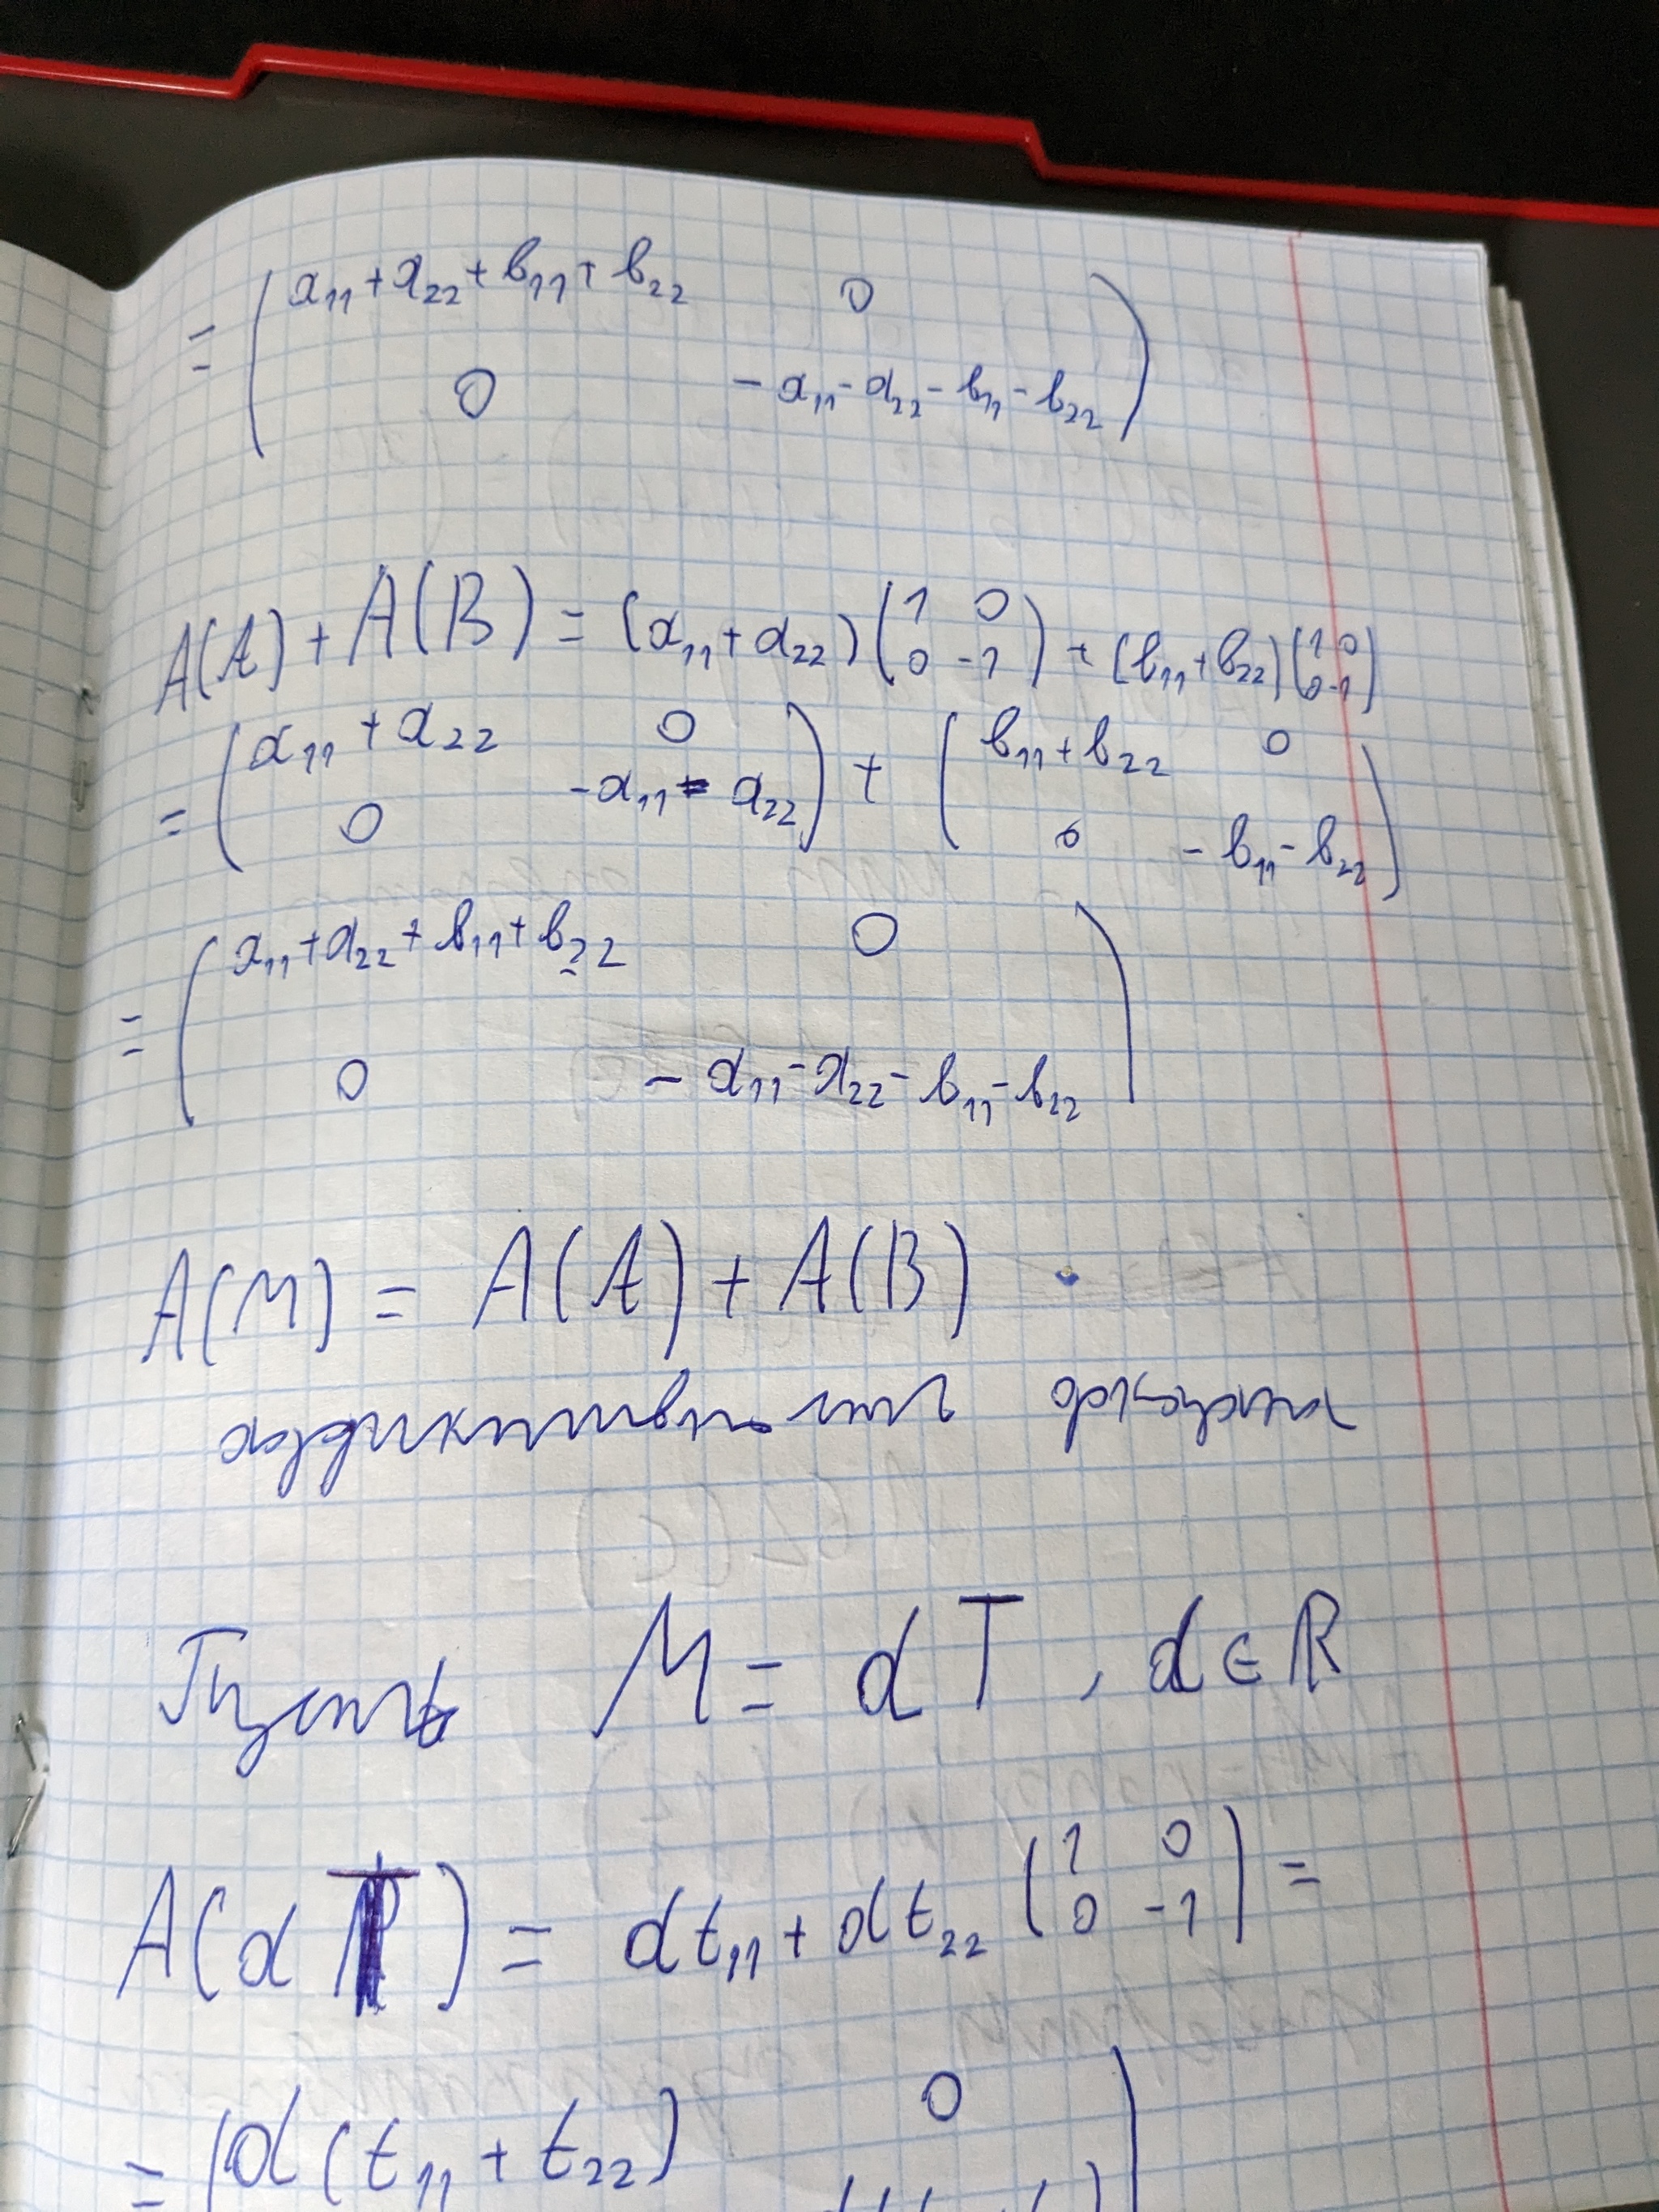 = ( a₁₁+a₂₂+b₁₁+b₂₂ 0
0 -a₁₁-a₂₂-b₁₁-b₂₂ )
A(A) + A(B) = (a₁₁+a₂₂) ( 1 0 0 -1 ) + (b₁₁+b₂₂) ( 1 0 0 -1 )
= ( a₁₁+a₂₂ 0 0 -a₁₁-a₂₂ ) + ( b₁₁+b₂₂ 0 0 -b₁₁-b₂₂ )
= ( a₁₁+a₂₂+b₁₁+b₂₂ 0
0 -a₁₁-a₂₂-b₁₁-b₂₂ )
A(M) = A(A) + A(B)
аддиктивность доказана
Пусть M = αT, α∈R
A(αT) = αt₁₁+αt₂₂ ( 1 0 0 -1 ) =
= ( α(t₁₁+t₂₂) 0